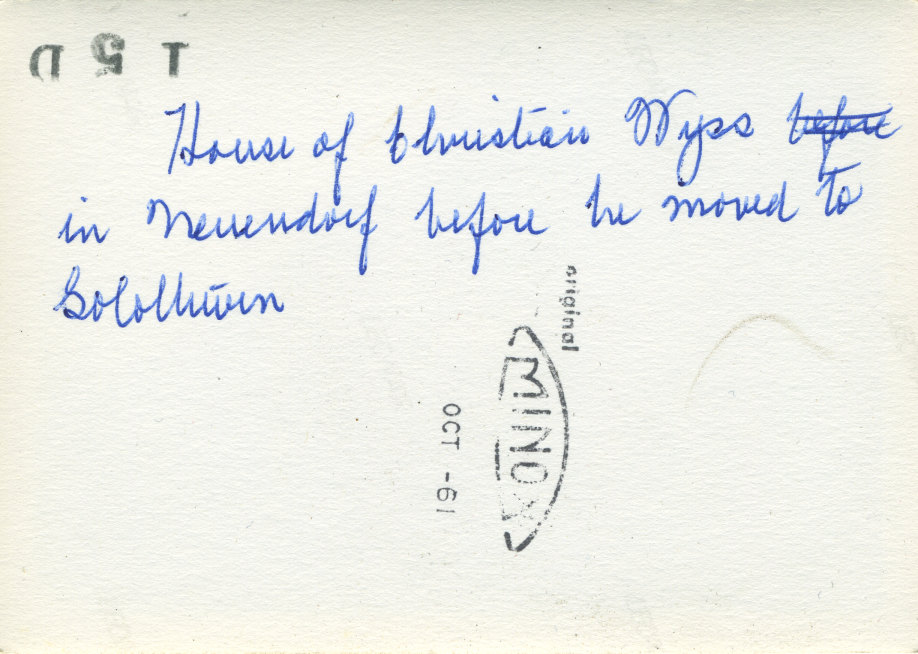 15D
House of Christian Wyss before
in Neuendorf before he moved to
Solothurn
original
MINOX
OCT -61